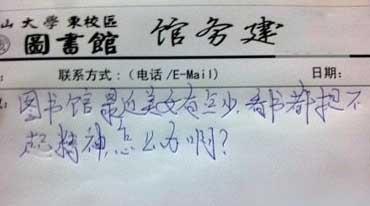 山大學東校區
圖書館 馆务建
联系方式：（电话/E-Mail） 日期：
图书馆最近美女有点少，看书都提不
起精神，怎么办啊？